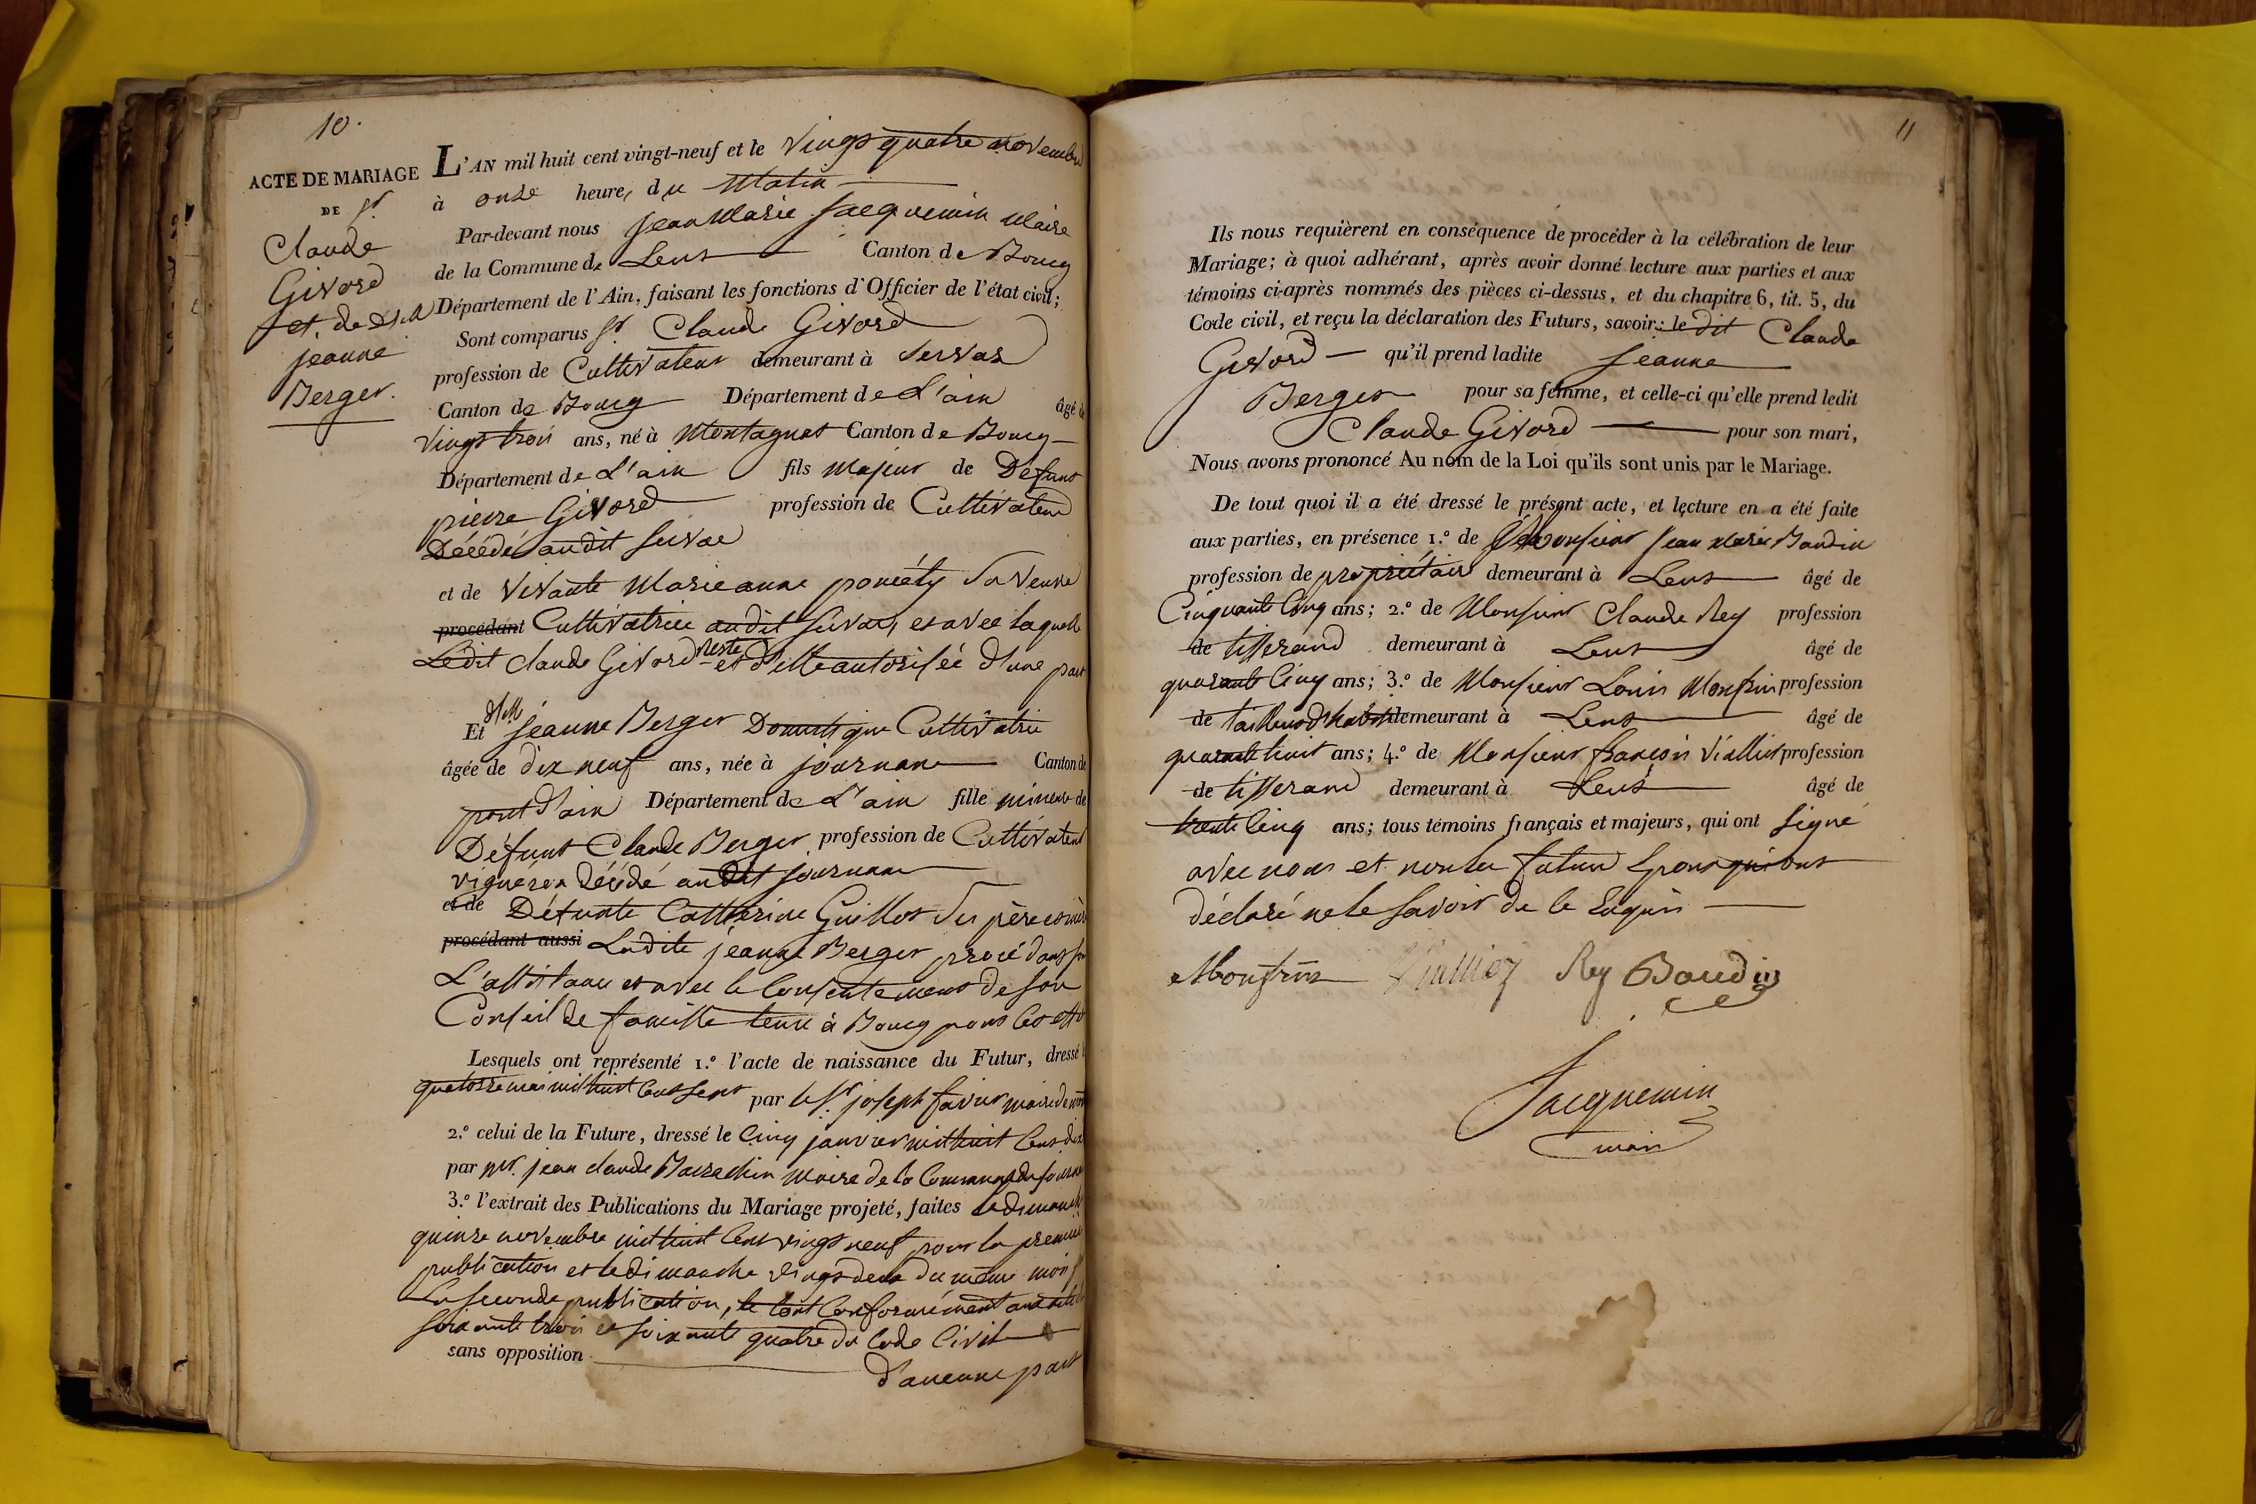 10.
ACTE DE MARIAGE
DE Sr.
Claude
Givord
et de Dlle
jeanne
Berger.
L'AN mil huit cent vingt-neuf et le vingt quatre novembre
à onze heures du Matin
Par-devant nous Jean Marie Jacquemin Maire
de la Commune de Lent Canton de Bourg
Département de l'Ain, faisant les fonctions d'Officier de l'état civil;
Sont comparus Sr. Claude Givord
profession de Cultivateur demeurant à Servas
Canton de Bourg Département de L'ain âgé de
vingt trois ans, né à Montagnat Canton de Bourg
Département de L'ain fils Majeur de Défunt
pierre Givord profession de Cultivateur
Décédé audit Servas
et de vivante Marie anne Sa veuve
procédant Cultivatrice audit Servas, et avec laquelle
Ledit Claude Givord reste et d'elle autorisée d'une part
Et Dlle Jeanne Berger Domestique Cultivatrice
âgée de dix neuf ans, née à journans Canton de
pont d'ain Département de L'ain fille mineure de
Défunt Claude Berger profession de Cultivateur
vigneron Décédé audit journans
et de Défunte Catherine Guillot Ses père et mère
procédant aussi Ladite jeanne Berger procédant sous
L'assistance et avec le Consentement de son
Conseil de famille tenu à Bourg pour Cet effet
Lesquels ont représenté 1.º l'acte de naissance du Futur, dressé le
quatorze mai mil huit Cent Sept par le Sr. joseph favier maire de
2.º celui de la Future, dressé le Cinq janvier mil huit Cent dix
par Mr. jean claude Maire de la Commune de journans
3.º l'extrait des Publications du Mariage projeté, faites Le dimanche
quinze novembre mil huit Cent vingt neuf pour la première
publication et le dimanche vingt deux du même mois p
La Seconde publication, le tout Conformément aux articles
soixante trois et soixante quatre du Code Civil
sans opposition d'aucune part
11
Ils nous requièrent en conséquence de procéder à la célébration de leur
Mariage; à quoi adhérant, après avoir donné lecture aux parties et aux
témoins ci-après nommés des pièces ci-dessus, et du chapitre 6, tit. 5, du
Code civil, et reçu la déclaration des Futurs, savoir: le dit Claude
Givord qu'il prend ladite Jeanne
Berger pour sa femme, et celle-ci qu'elle prend ledit
Claude Givord pour son mari,
Nous avons prononcé Au nom de la Loi qu'ils sont unis par le Mariage.
De tout quoi il a été dressé le présent acte, et lecture en a été faite
aux parties, en présence 1.º de Monsieur Jean Marie Baudin
profession de propriétaire demeurant à Lent âgé de
Cinquante Cinq ans; 2.º de Monsieur Claude Rey profession
de tisserand demeurant à Lent âgé de
quarante Cinq ans; 3.º de Monsieur Louis Monfrin profession
de tailleur d'habits demeurant à Lent âgé de
quarante huit ans; 4.º de Monsieur françois Vialliet profession
de tisserand demeurant à Lent âgé de
trente Cinq ans; tous témoins français et majeurs, qui ont signé
avec nous et non les futurs Epoux qui ont
déclaré ne le savoir de ce Enquis
Monfrin Rey Baudin
Jacquemin
maire